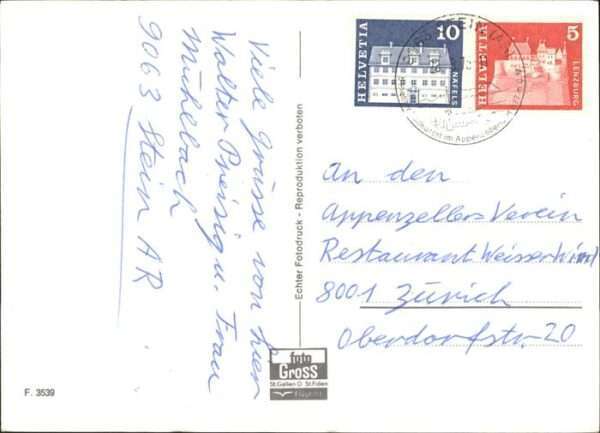 Viele Grüsse von hier
Walter Preisig u. Frau
Mühlbach
9063 Stein AR
Echter Fotodruck - Reproduktion verboten
foto
GROSS
St. Gallen O St. Fiden
F. 3539
HELVETIA
10
NÄFELS
HELVETIA
5
LENZBURG
An den
Appenzeller Verein
Restaurant Weisser Wind
8001 Zürich
Oberdorfstr. 20